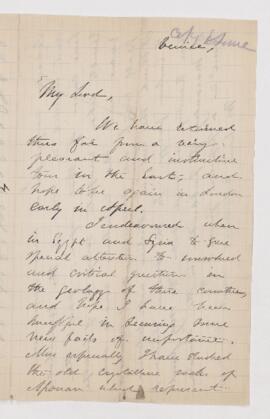 Venice,
My Lord,
We have returned
thus far from a very
pleasant and instructive
tour in the East; and
hope to be again in London
early in April.
I endeavoured when
in Egypt and Syria to give
special attention to unsolved
and critical questions in
the geology of these countries,
and hope I have been
successful in securing some
new facts of importance.
More especially I have studied
the old crystalline rocks of
Assouan which represent